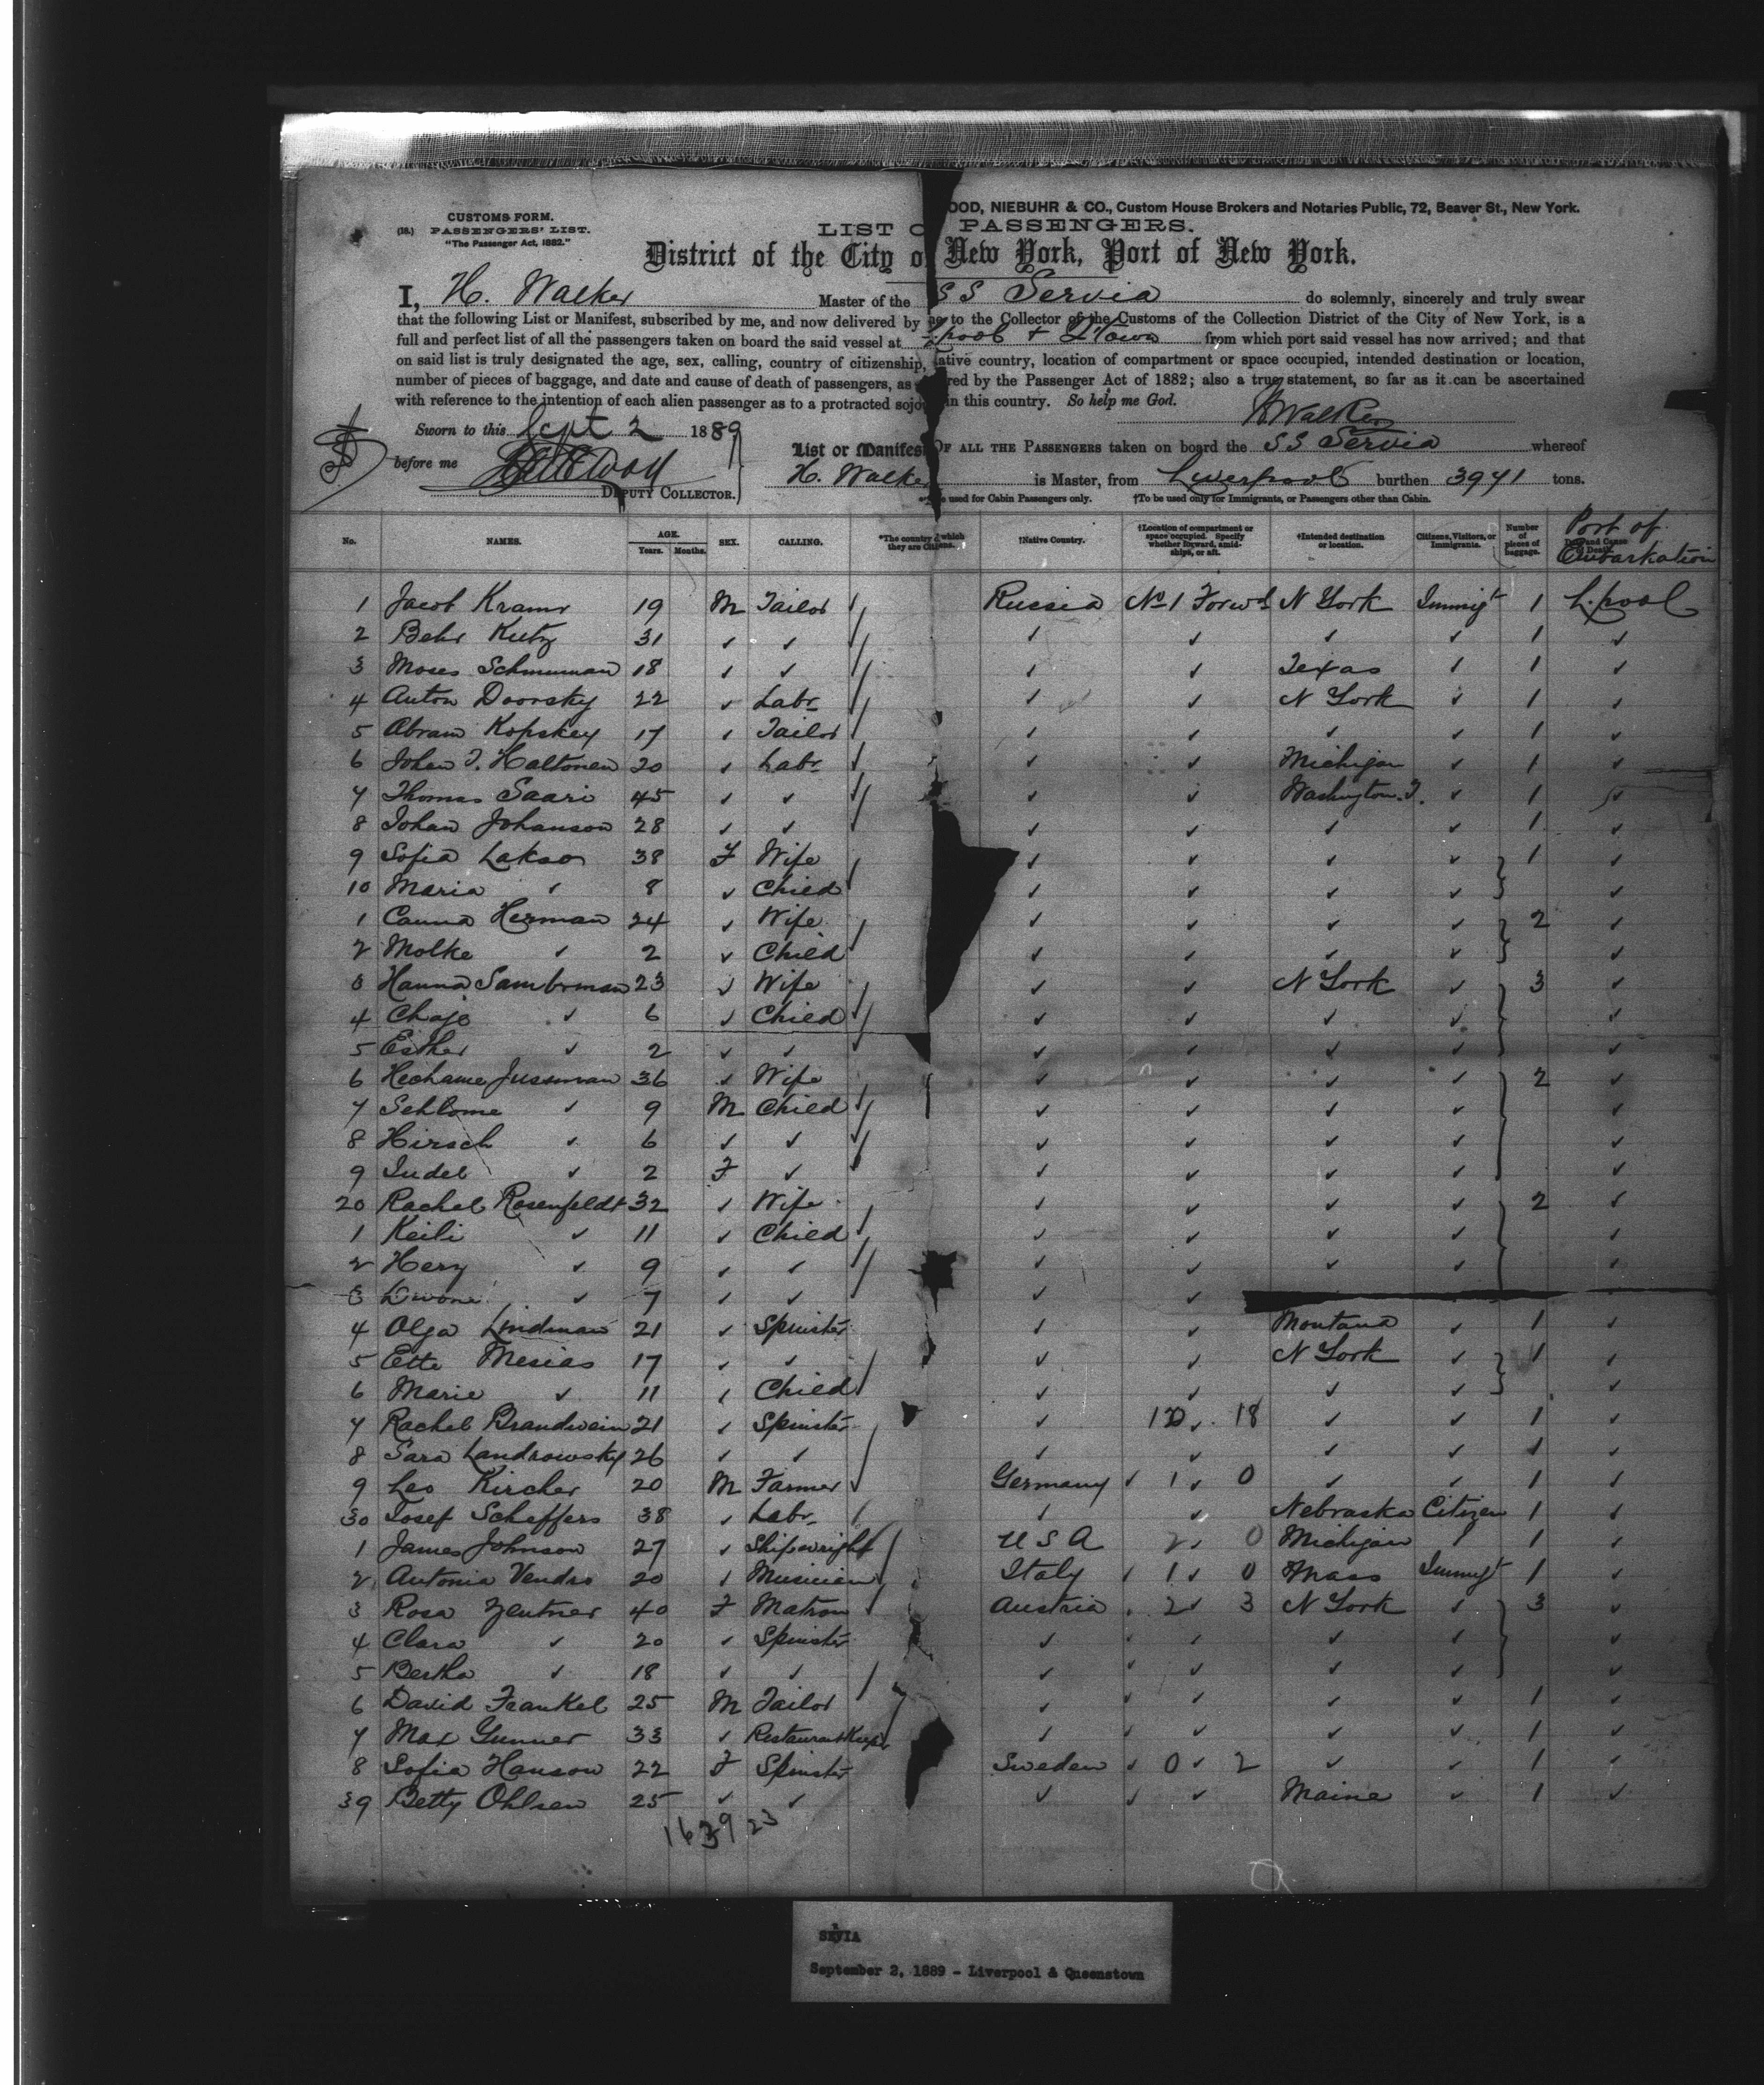 OOD, NIEBUHR & CO., Custom House Brokers and Notaries Public, 72, Beaver St., New York.
CUSTOMS FORM.
(18.) PASSENGERS' LIST.
"The Passenger Act, 1882."
LIST O PASSENGERS.
District of the City o New York, Port of New York.
I, H. Walker Master of the S S Servia do solemnly, sincerely and truly swear
that the following List or Manifest, subscribed by me, and now delivered by me to the Collector of the Customs of the Collection District of the City of New York, is a
full and perfect list of all the passengers taken on board the said vessel at L'pool + Q'town from which port said vessel has now arrived; and that
on said list is truly designated the age, sex, calling, country of citizenship, native country, location of compartment or space occupied, intended destination or location,
number of pieces of baggage, and date and cause of death of passengers, as red by the Passenger Act of 1882; also a true statement, so far as it can be ascertained
with reference to the intention of each alien passenger as to a protracted sojo in this country. So help me God.
H Walker
Sworn to this Sept 2 1889
before me
DEPUTY COLLECTOR.
List or Manifest OF ALL THE PASSENGERS taken on board the S S Servia whereof
H. Walker is Master, from Liverpool burthen 3941 tons.
used for Cabin Passengers only. †To be used only for Immigrants, or Passengers other than Cabin.
No. NAMES. AGE. Years. Months. SEX. CALLING. *The country of which they are Citizens. †Native Country. †Location of compartment or space occupied. Specify whether forward, amidships, or aft. †Intended destination or location. Citizens, Visitors, or Immigrants. Number of pieces of baggage. Port of Embarkation
1 Jacob Kramr 19 M Tailor Russia No 1 Forwd N York Immigt 1 L.pool
2 Behr Kutz 31 ✓ ✓ ✓ ✓ ✓ ✓ 1 ✓
3 Moses Schmuman 18 ✓ ✓ ✓ ✓ Texas ✓ 1 ✓
4 Anton Doorsky 22 ✓ Labr ✓ ✓ N York ✓ 1 ✓
5 Abram Kopskey 17 ✓ Tailor ✓ ✓ ✓ ✓ 1 ✓
6 Johan T. Haltonen 20 ✓ Labr ✓ ✓ Michigan ✓ 1 ✓
7 Thomas Saari 45 ✓ ✓ ✓ ✓ Washington.T. ✓ 1 ✓
8 Johan Johanson 28 ✓ ✓ ✓ ✓ ✓ ✓ 1 ✓
9 Sofia Lakso 38 F Wife ✓ ✓ ✓ ✓ 1 ✓
10 Maria ✓ 8 ✓ Child ✓ ✓ ✓ ✓ ✓
1 Canna Herman 24 ✓ Wife ✓ ✓ ✓ ✓ 2 ✓
2 Molke ✓ 2 ✓ Child ✓ ✓ ✓ ✓ ✓
3 Hanna Sambrman 23 ✓ Wife ✓ ✓ N York ✓ 3 ✓
4 Chaje ✓ 6 ✓ Child ✓ ✓ ✓ ✓ ✓
5 Esther ✓ 2 ✓ ✓ ✓ ✓ ✓ ✓ ✓
6 Hechame Jussman 36 ✓ Wife ✓ ✓ ✓ ✓ 2 ✓
7 Schlome ✓ 9 M Child ✓ ✓ ✓ ✓ ✓
8 Hirsch ✓ 6 ✓ ✓ ✓ ✓ ✓ ✓ ✓
9 Judel ✓ 2 F ✓ ✓ ✓ ✓ ✓ ✓
20 Rachel Rosenfeldt 32 ✓ Wife ✓ ✓ ✓ ✓ 2 ✓
1 Keili ✓ 11 ✓ Child ✓ ✓ ✓ ✓ ✓
2 Herz ✓ 9 ✓ ✓ ✓ ✓ ✓ ✓ ✓
3 Dwone ✓ 7 ✓ ✓ ✓ ✓ ✓
4 Olga Lindman 21 ✓ Spinster ✓ ✓ Montana ✓ 1 ✓
5 Ette Mesias 17 ✓ ✓ ✓ ✓ N York ✓ 1 ✓
6 Marie ✓ 11 ✓ Child ✓ ✓ ✓ ✓ ✓
7 Rachel Brandwein 21 ✓ Spinster ✓ 18 ✓ ✓ 1 ✓
8 Sara Landrowsky 26 ✓ ✓ ✓ ✓ ✓ ✓ 1 ✓
9 Leo Kircher 20 M Farmer Germany ✓ 1 ✓ 0 ✓ ✓ 1 ✓
30 Josef Scheffers 38 ✓ Labr ✓ ✓ Nebraska Citizen 1 ✓
1 James Johnson 27 ✓ Shipwright U S A 2 ✓ 0 Michigan ✓ 1 ✓
2 Antonia Vendro 20 ✓ Musician Italy ✓ 1 ✓ 0 Mass Immigt 1 ✓
3 Rosa Zentner 40 F Matron Austria ✓ 2 ✓ 3 N York ✓ 3 ✓
4 Clara ✓ 20 ✓ Spinster ✓ ✓ ✓ ✓ ✓ ✓
5 Bertha ✓ 18 ✓ ✓ ✓ ✓ ✓ ✓ ✓ ✓
6 David Frankel 25 M Tailor ✓ ✓ ✓ ✓ ✓ 1 ✓
7 Max Gunner 33 ✓ Restaurant Keeper ✓ ✓ ✓ ✓ ✓ 1 ✓
8 Sofia Hanson 22 F Spinster Sweden ✓ 0 ✓ 2 ✓ ✓ 1 ✓
39 Betty Ohlsen 25 ✓ ✓ ✓ ✓ ✓ Maine ✓ 1 ✓
16 39 23
SEVIA
September 2, 1889 - Liverpool & Queenstown